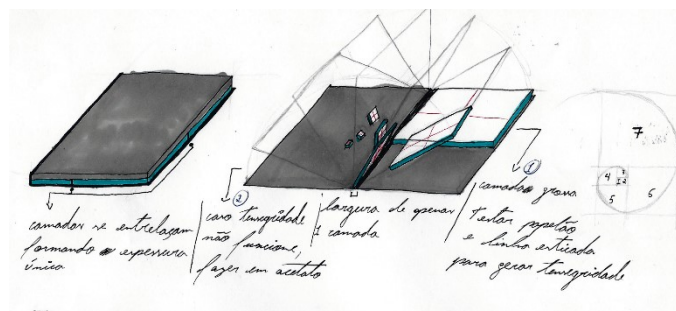 camadas se entrelaçam
formando a espessura
única
2
caso tensegridade
não funcione,
fazer em acetato
largura de apenas
1 camada
1
camadas grossa
testar papetão
e linha esticada
para gerar tensegridade
7
4
3
1 2
5
6